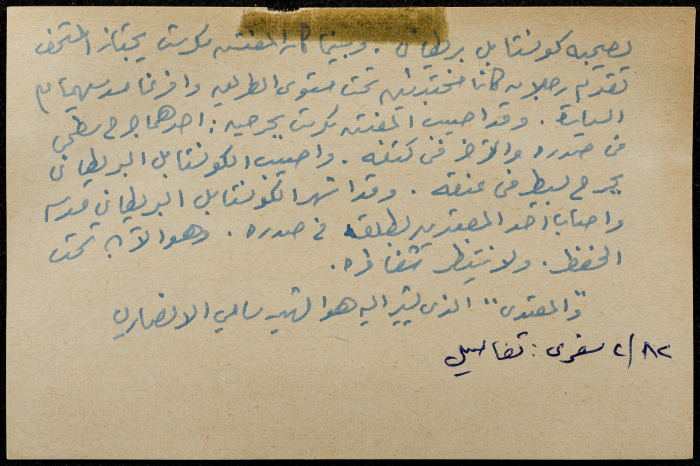 يصحبه كونستابل بريطاني. وبينما كان المفتش سكرست يجتاز المتحف
تقدم رجلان كانا مختبئين تحت مستوى الطريق وافرغا مسدسيهما في
السيارة. وقد اصيب المفتش سكرست بجرحين: احدهما جرح سطحي
في صدره والآخر في كتفه. واصيب الكونستابل البريطاني
بجرح بسيط في عنقه. وقد اشهر الكونستابل البريطاني مسدسه
واصاب احد المعتدين بطلقة في صدره. وهو الآن تحت
الحفظ. ولا ينتظر شفاؤه.
"والمعتدى" الذى يشير اليه هو الشهيد سامي الانصاري
٨٢/٢ سفري: تفاصيل